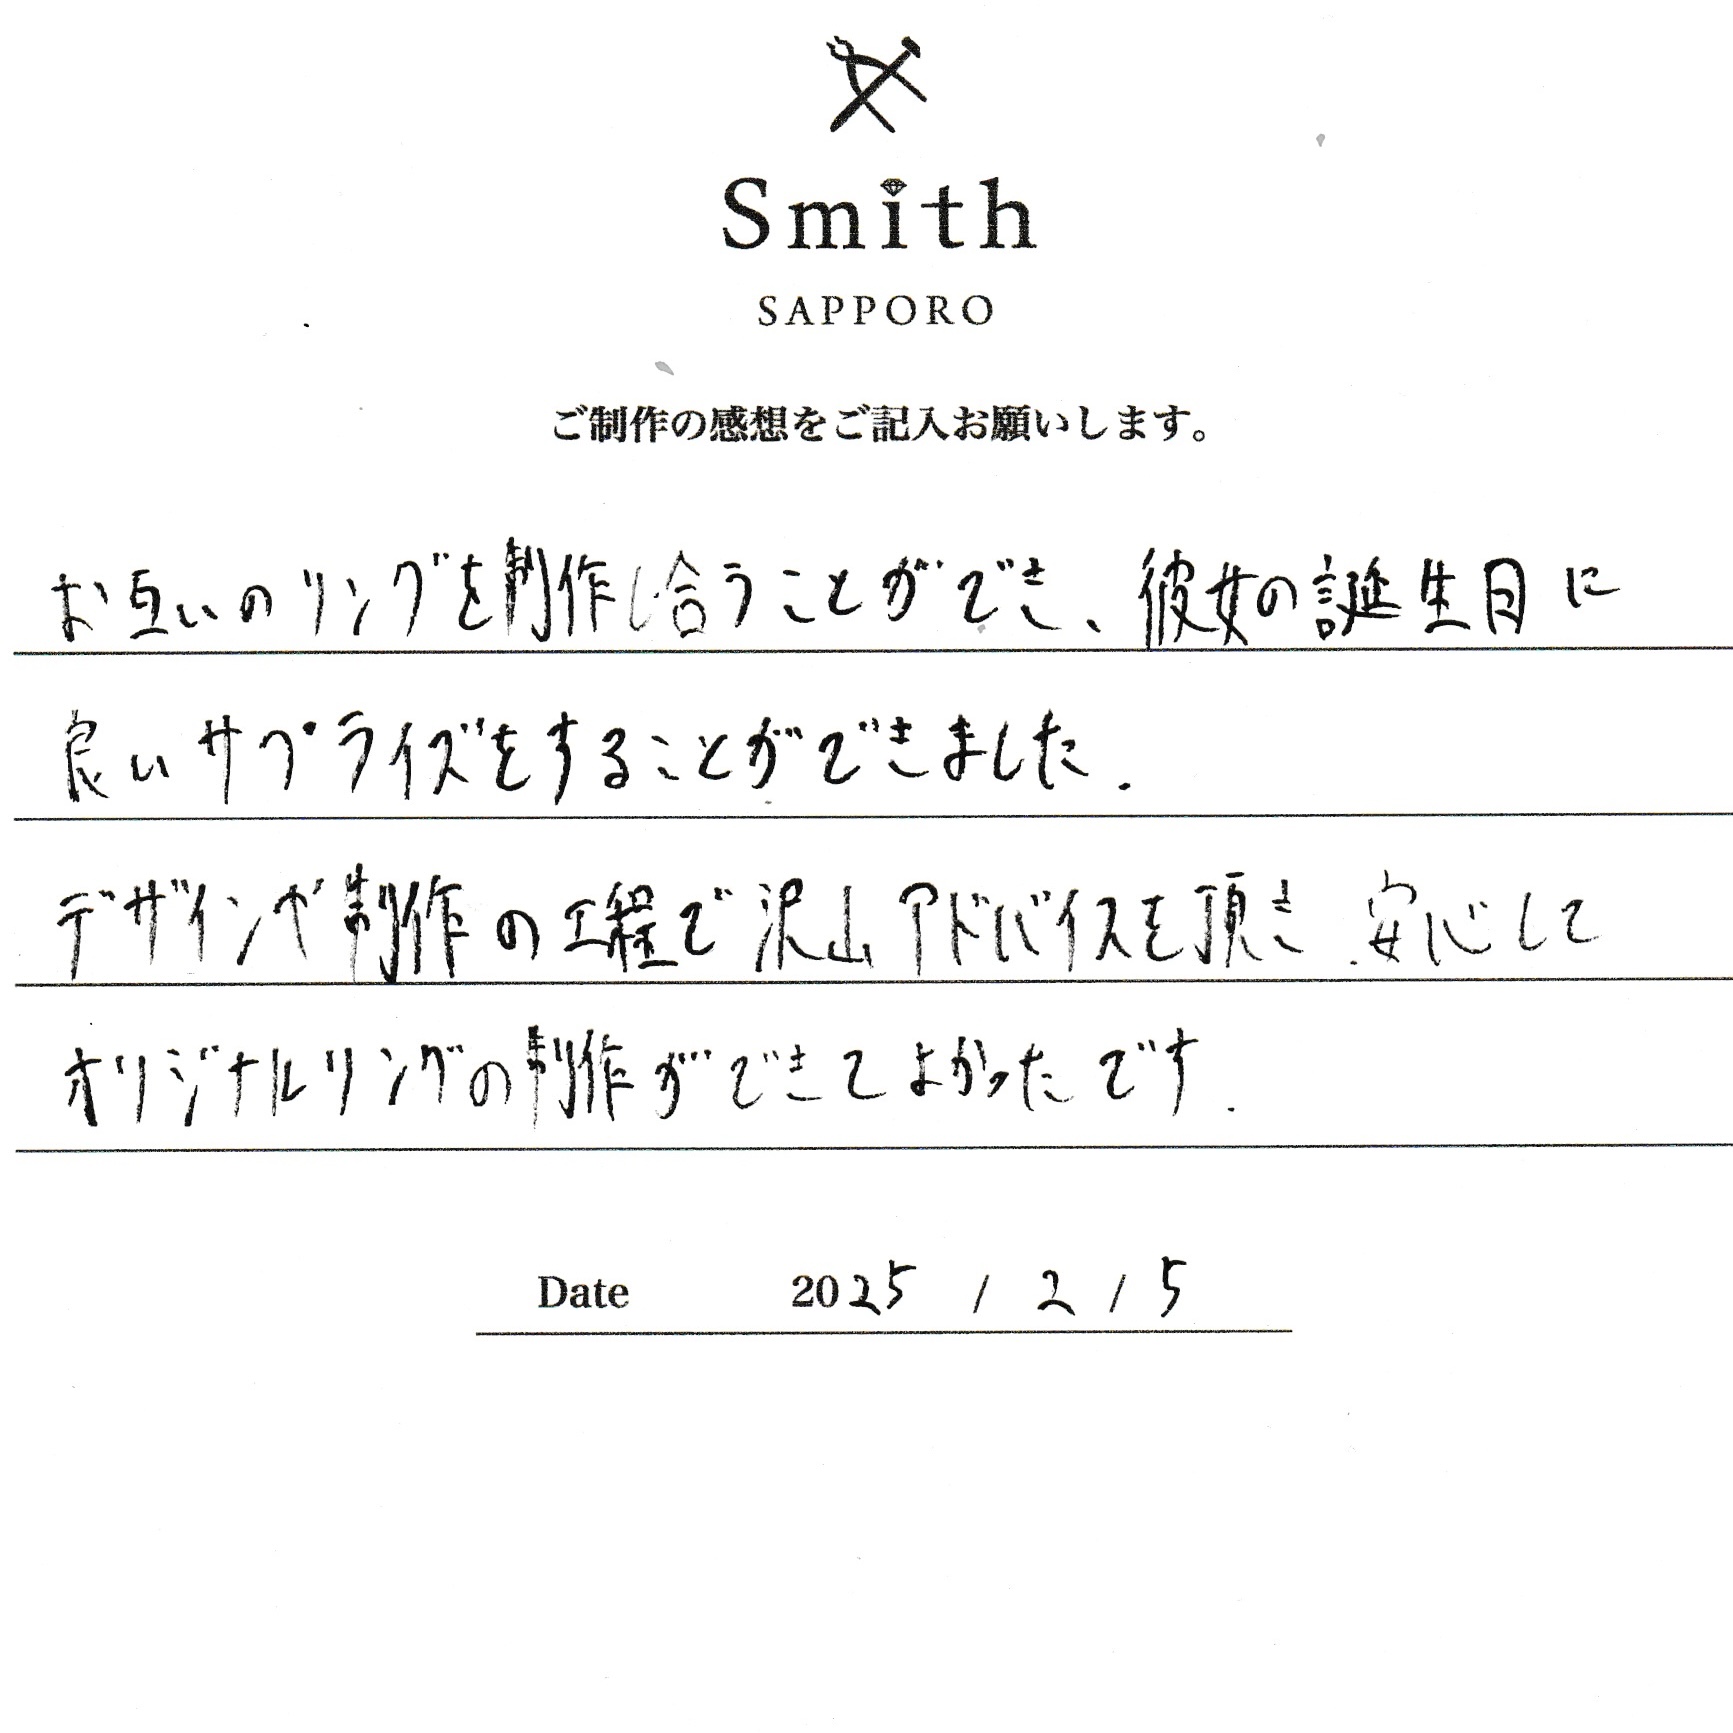 Smith
SAPPORO
ご制作の感想をご記入お願いします。
お互いのリングを制作し合うことができ、彼女の誕生日に
良いサプライズをすることができました.
デザインや制作の工程で沢山アドバイスを頂き.安心して
オリジナルリングの制作ができてよかったです.
Date 2025 / 2 / 5